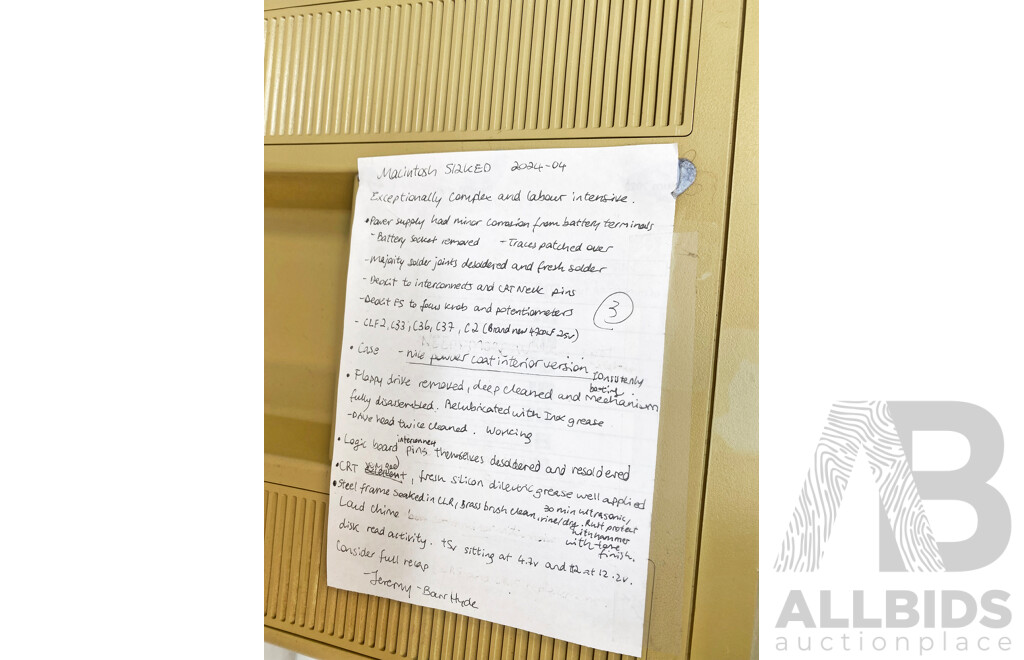 Macintosh 512KED 2024-04
Exceptionally complex and labour intensive.
• Power supply had minor corrosion from battery terminals
- Battery socket removed - Traces patched over
- Majority solder joints desoldered and fresh solder
- Deoxit to interconnects and CRT Neck pins
- Deoxit F5 to focus knob and potentiometers
3
- CLF2, C33, C36, C37, C2 (Brand new 4700uF 25v)
• Case - nice powder coat interior version
consistently
booting.
• Floppy drive removed, deep cleaned and mechanism
fully disassembled. Relubricated with Inox grease
- Drive head twice cleaned. Working
• Logic board interconnect pins themselves desoldered and resoldered
• CRT, fresh silicon dilectric grease well applied
• Steel frame soaked in CLR, Brass brush clean, 30 min ultrasonic,
rinse/dry. Rust protect
with hammer
with-tone
finish.
Loud chime
disk read activity. +5v sitting at 4.7v and 12 at 12.2v.
Consider full recap
- Jeremy - Barr Hyde
AB
ALLBIDS
auctionplace